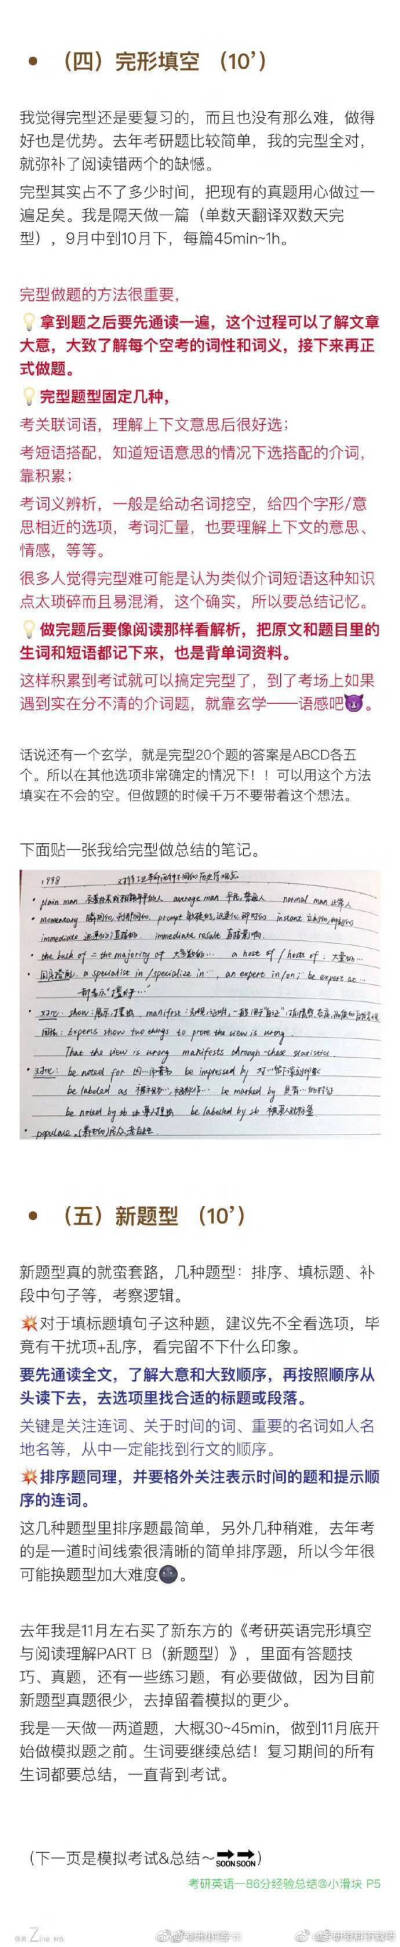 • （四）完形填空 （10’）
我觉得完型还是要复习的，而且也没有那么难，做得
好也是优势。去年考研题比较简单，我的完型全对，
就弥补了阅读错两个的缺憾。
完型其实占不了多少时间，把现有的真题用心做过一
遍足矣。我是隔天做一篇（单数天翻译双数天完
型），9月中到10月下，每篇45min~1h。
完型做题的方法很重要，
💡拿到题之后要先通读一遍，这个过程可以了解文章
大意，大致了解每个空考的词性和词义，接下来再正
式做题。
💡完型题型固定几种，
考关联词语，理解上下文意思后很好选；
考短语搭配，知道短语意思的情况下选搭配的介词，
靠积累；
考词义辨析，一般是给动名词挖空，给四个字形/意
思相近的选项，考词汇量，也要理解上下文的意思、
情感，等等。
很多人觉得完型难可能是认为类似介词短语这种知识
点太琐碎而且易混淆，这个确实，所以要总结记忆。
💡做完题后要像阅读那样看解析，把原文和题目里的
生词和短语都记下来，也是背单词资料。
这样积累到考试就可以搞定完型了，到了考场上如果
遇到实在分不清的介词题，就靠玄学——语感吧😈。
话说还有一个玄学，就是完型20个题的答案是ABCD各五
个。所以在其他选项非常确定的情况下！！可以用这个方法
填实在不会的空。但做题的时候千万不要带着这个想法。
下面贴一张我给完型做总结的笔记。
1998
plain man average man normal man 正常人
momentary prompt instant
immediate immediate result
the bulk of = the majority of a host of / hosts of : 大量的
a specialist in / specialize in … , an expert in/on ; be expert at …
show: manifest:
Experts show two things to prove the view is wrong
That the view is wrong manifests through these statistics
be noted for be impressed by
be labeled as be marked by
be noted by sb be labeled by sb
populace
• （五）新题型 （10’）
新题型真的就蛮套路，几种题型：排序、填标题、补
段中句子等，考察逻辑。
💥对于填标题填句子这种题，建议先不全看选项，毕
竟有干扰项+乱序，看完留不下什么印象。
要先通读全文，了解大意和大致顺序，再按照顺序从
头读下去，去选项里找合适的标题或段落。
关键是关注连词、关于时间的词、重要的名词如人名
地名等，从中一定能找到行文的顺序。
💥排序题同理，并要格外关注表示时间的题和提示顺
序的连词。
这几种题型里排序题最简单，另外几种稍难，去年考
的是一道时间线索很清晰的简单排序题，所以今年很
可能换题型加大难度🌚。
去年我是11月左右买了新东方的《考研英语完形填空
与阅读理解PART B（新题型）》，里面有答题技
巧、真题，还有一些练习题，有必要做做，因为目前
新题型真题很少，去掉留着模拟的更少。
我是一天做一两道题，大概30~45min，做到11月底开
始做模拟题之前。生词要继续总结！复习期间的所有
生词都要总结，一直背到考试。
（下一页是模拟考试&总结～🔜🔜）
考研英语一86分经验总结@小滑块 P5